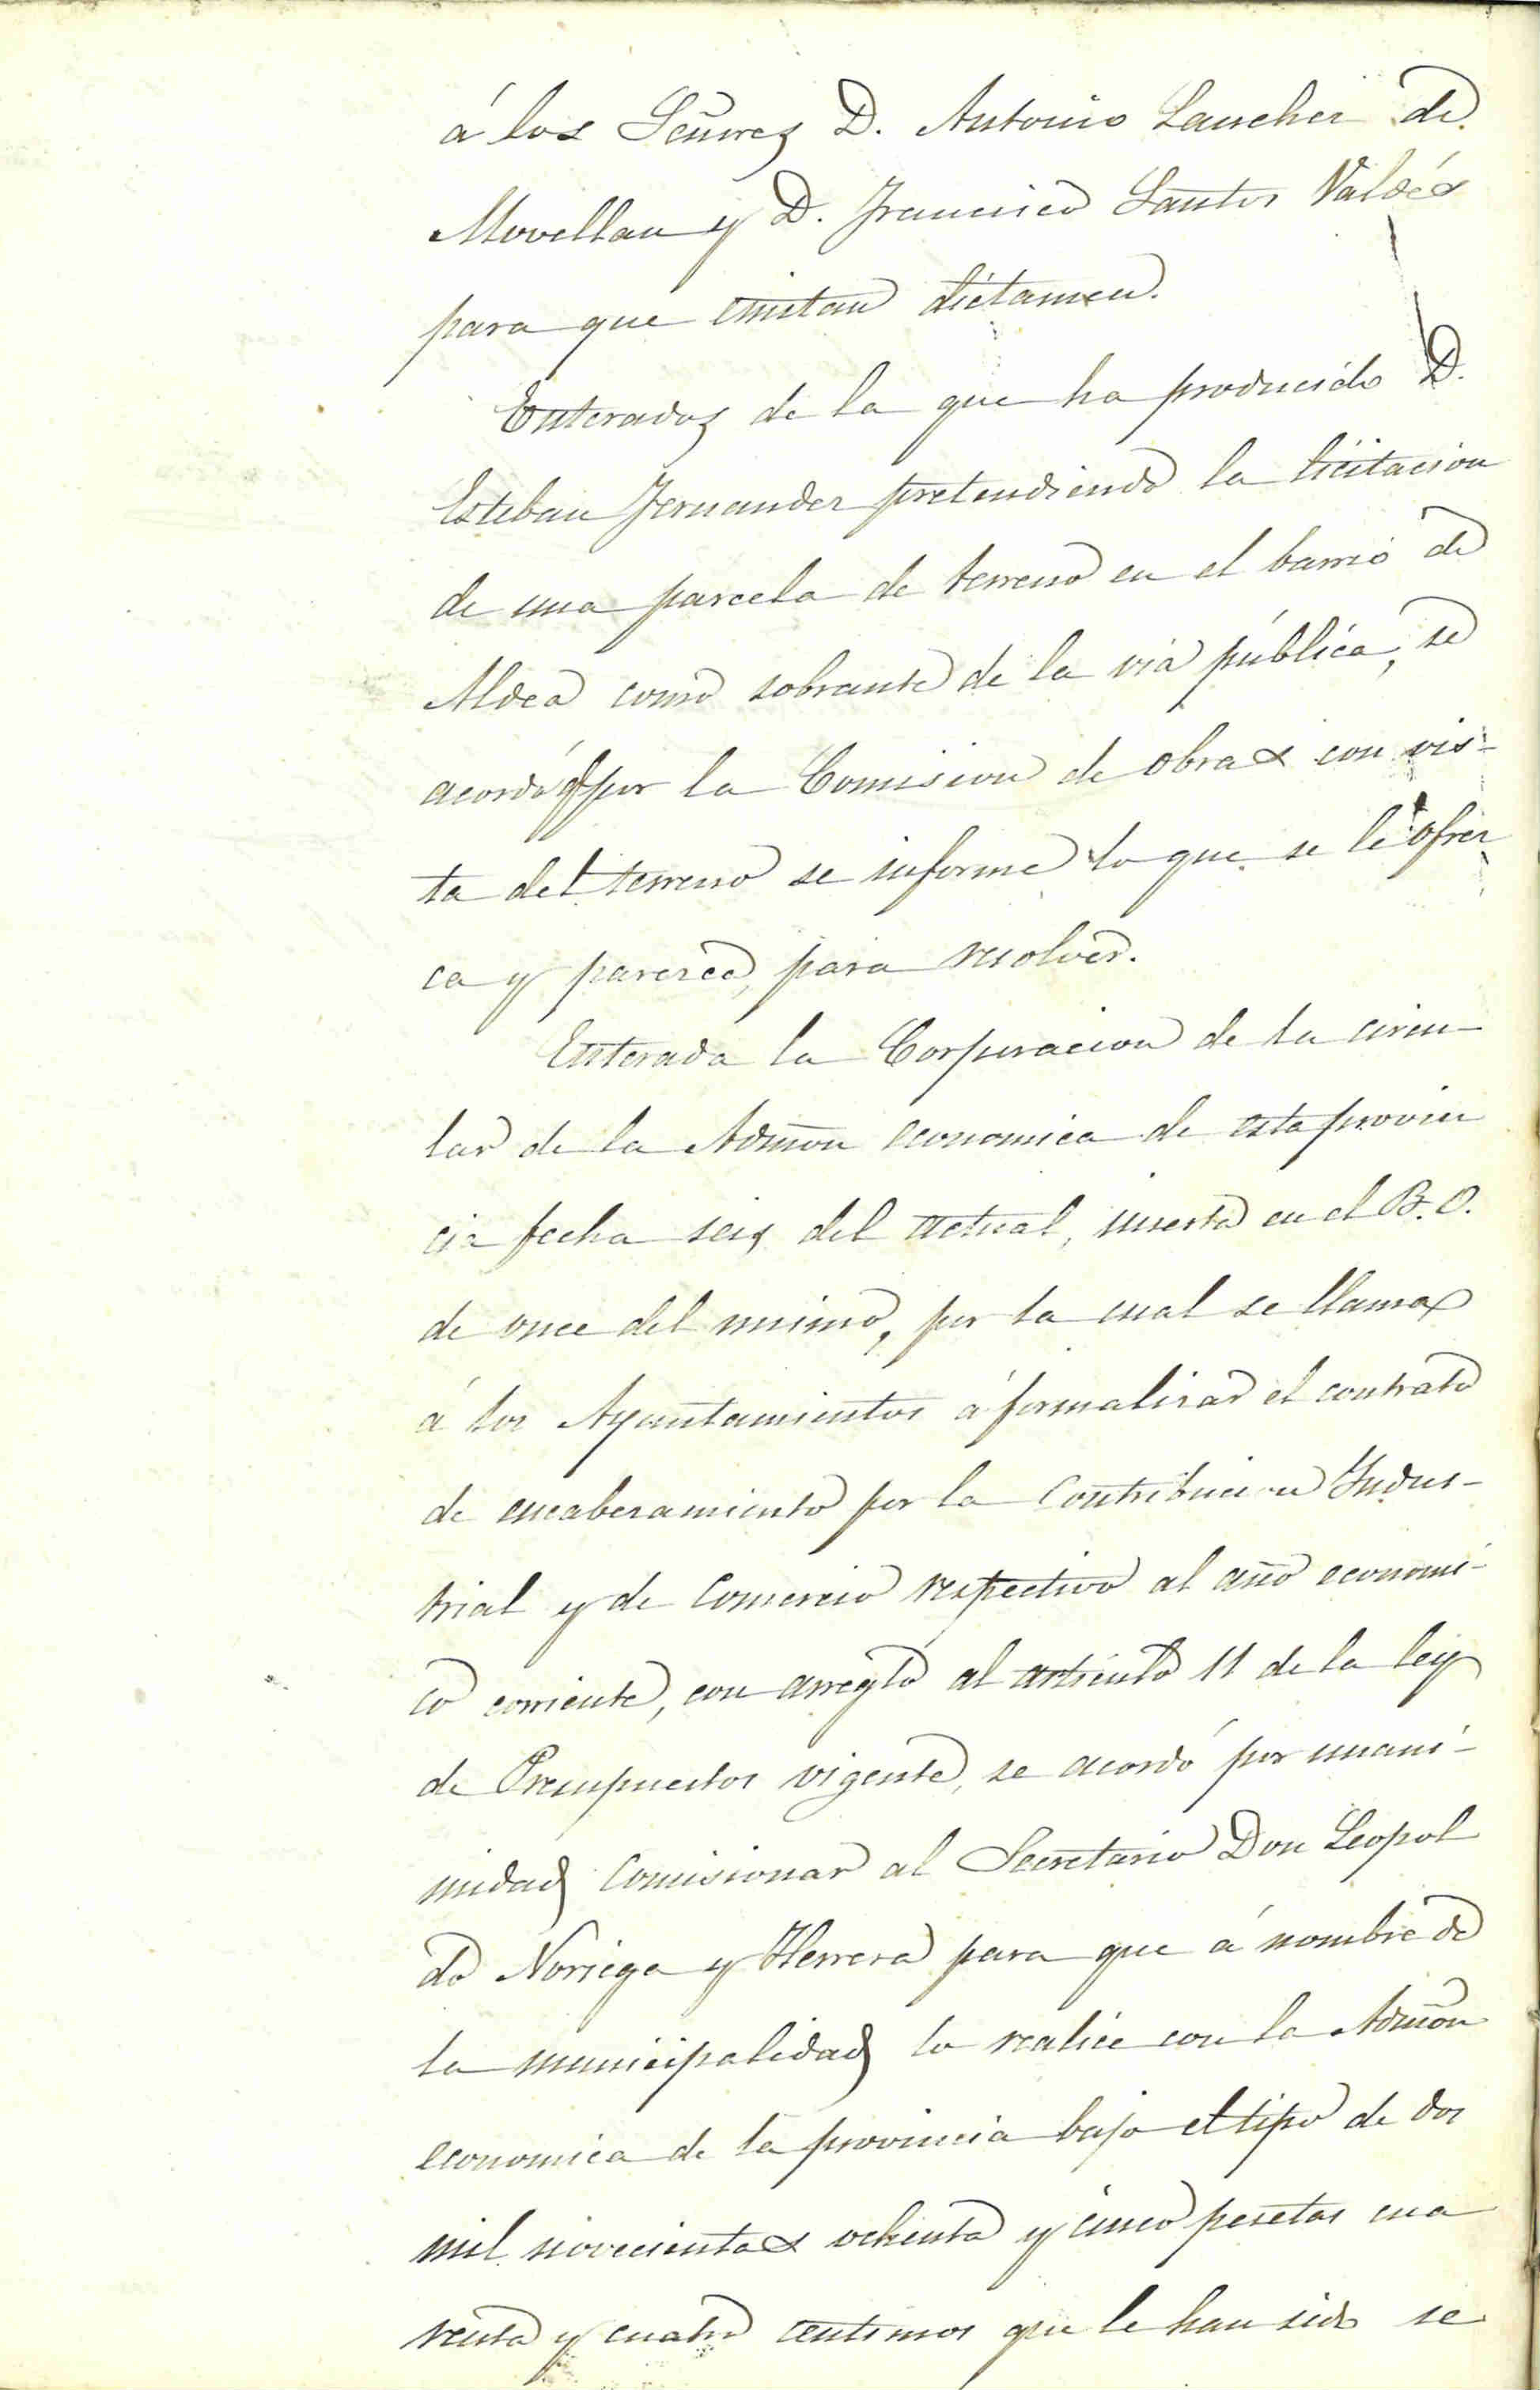 á los Señores D. Antonio Sanchez de
Movellan y D. Francisco Santos Valdés
para que emitan dictamen.
Enterados de la que ha producido D.
Esteban Fernandez pretendiendo la licitacion
de una parcela de terreno en el barrio de
Aldea como sobrante de la via pública, se
acordó q por la Comision de obras con vis-
ta del terreno se informe lo que se le ofrez
ca y parezca, para resolver.
Enterada la Corporacion de la circu-
lar de la Admon economica de esta provin
cia fecha seis del actual, inserta en el B.O.
de once del mismo, por la cual se llama
á los Ayuntamientos á formalizar el contrato
de encabezamiento por la Contribucion Indus-
trial y de Comercio respectivo al año economi-
co corriente, con arreglo al artículo 11 de la ley
de Presupuestos vigente, se acordó por unani-
midad comisionar al Secretario Don Leopol
do Noriega y Herrera para que á nombre de
la municipalidad lo realice con la Admon
economica de la provincia bajo el tipo de dos
mil novecientas ochenta y cinco pesetas cua
renta y cuatro centimos que le han sido se